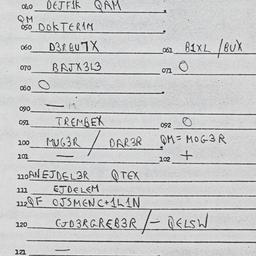 060 DEJF1K QAM
QM
050 DOKTER1M
060 D3RBU7X 061 B1XL / BUX
070 BRJX3L3 071 O
080 O
090 —
091 TREMBEX 092 O
100 MUG3R / DAR3R QM = MOG3R
101 — 102 +
110 ANEJDEL3R QTEX
111 EJDELEM
112 QF OJSMENC+1L1N
120 GJD3RGREB3R / — QELSW
121 —